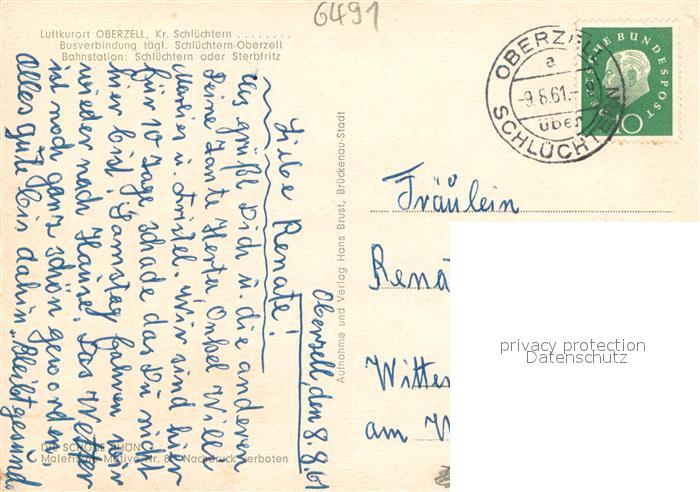 6491
Luftkurort OBERZELL, Kr. Schlüchtern ........
Busverbindung tägl. Schlüchtern-Oberzell
Bahnstation: Schlüchtern oder Sterbfritz
Oberzell, den 8.8.61
Liebe Renate!
es grüßt Dich u. die anderen
Deine Tante Herta Onkel Willi
u. Wir sind hier
für 10 Tage schade das Du nicht
hier bist. Samstag fahren wir
wieder nach Hause. Das Wetter
ist noch ganz schön geworden
alles gute bis dahin, Bleibt gesund
DIE SCHÖNE RHÖN
Malerische Motive Nr. 8 Nachdruck verboten
Aufnahme und Verlag Hans Brust, Brückenau-Stadt
OBERZELL
a
-9.8.61.-9
über
SCHLÜCHTERN
DEUTSCHE BUNDESPOST
10
Fräulein
Rena
Witte
am W
privacy protection
Datenschutz